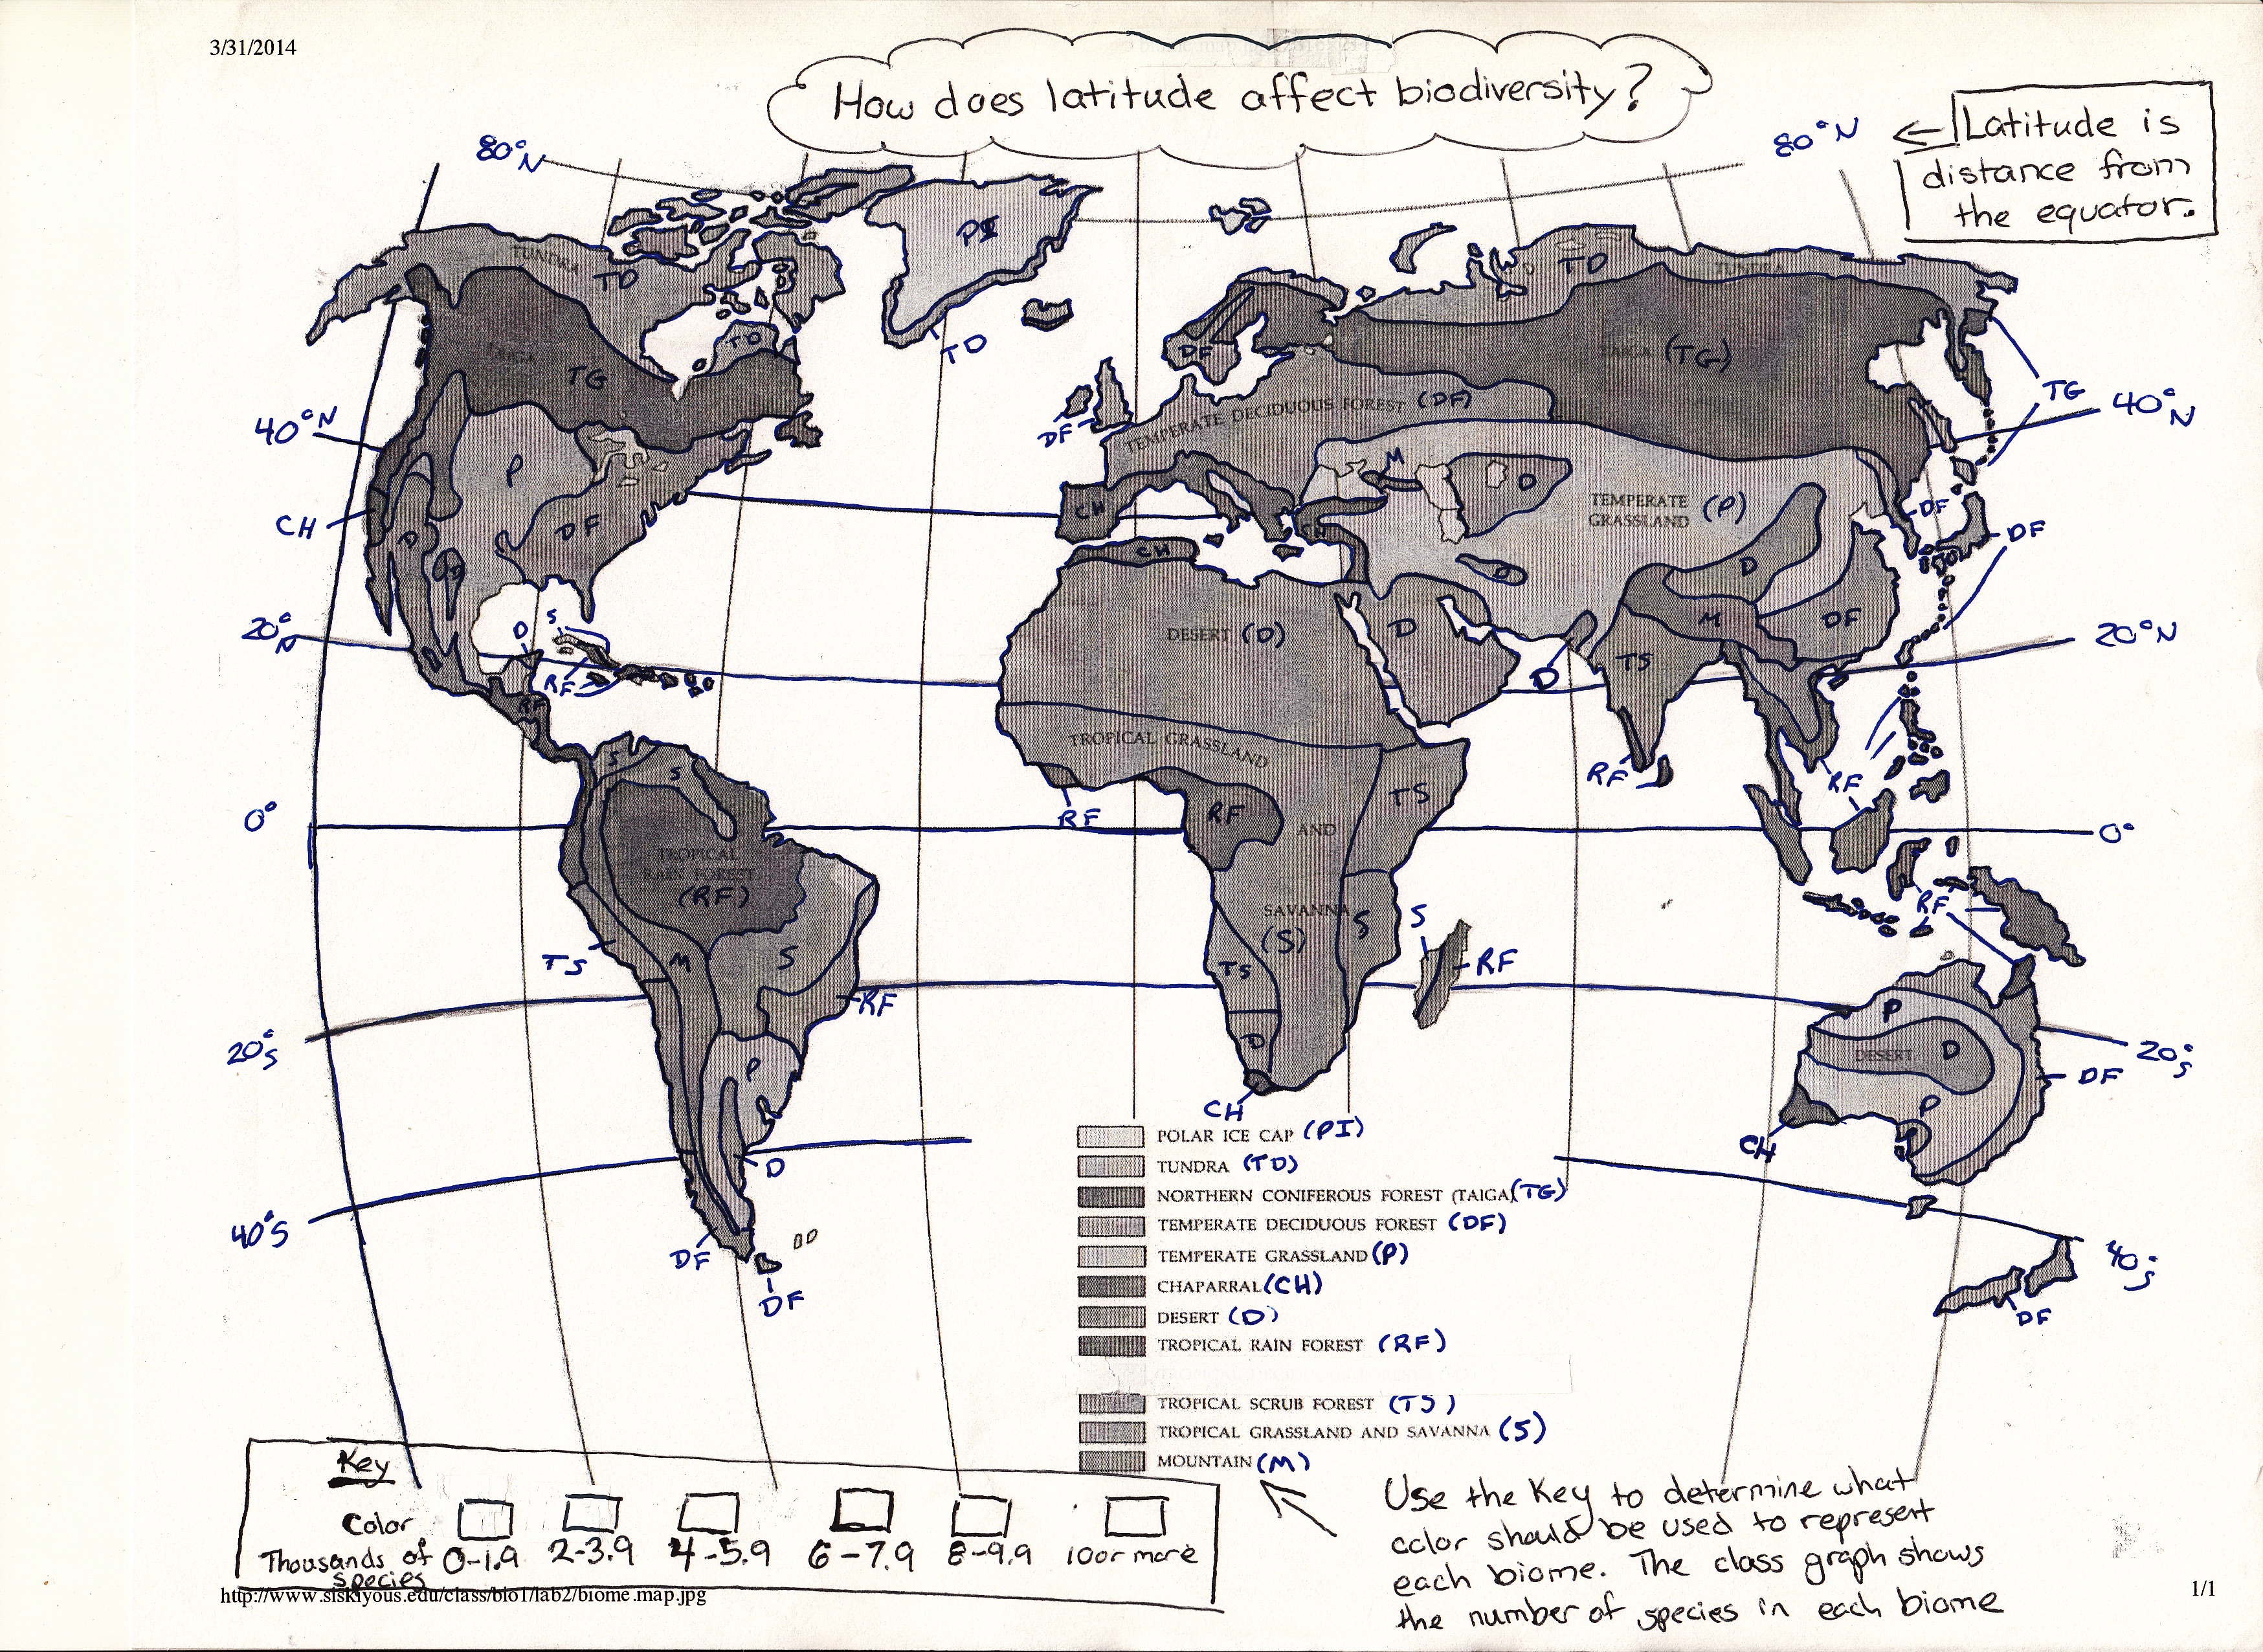 3/31/2014
How does latitude affect biodiversity?
80°N
80°N
← Latitude is
distance from
the equator.
PI
TUNDRA
TD
TD
TUNDRA
TD
TD
TAIGA
TG
DF
TAIGA (TG)
TG
40°N
40°N
DF
TEMPERATE DECIDUOUS FOREST (DF)
P
M
D
TEMPERATE
GRASSLAND (P)
CH
D
DF
CH
CH
CH
DF
DF
D
D
D
20°N
D
S
DESERT (D)
D
M
DF
20°N
RF
TS
D
RF
TROPICAL GRASSLAND
S
S
RF
RF
RF
RF
TS
0°
AND
0°
TROPICAL
RAIN FOREST
(RF)
SAVANNA
(S)
S
S
RF
TS
M
S
TS
RF
RF
P
20°S
D
DESERT D
20°S
P
DF
CH
P
CH
D
40°S
DF
DF
40°S
DF
POLAR ICE CAP (PI)
TUNDRA (TD)
NORTHERN CONIFEROUS FOREST (TAIGA) (TG)
TEMPERATE DECIDUOUS FOREST (DF)
TEMPERATE GRASSLAND (P)
CHAPARRAL (CH)
DESERT (D)
TROPICAL RAIN FOREST (RF)
TROPICAL SCRUB FOREST (TS)
TROPICAL GRASSLAND AND SAVANNA (S)
MOUNTAIN (M)
Key
Color
Thousands of species 0-1.9 2-3.9 4-5.9 6-7.9 8-9.9 10 or more
Use the Key to determine what
color should be used to represent
each biome. The class graph shows
the number of species in each biome
http://www.siskiyous.edu/class/bio1/lab2/biome.map.jpg
1/1